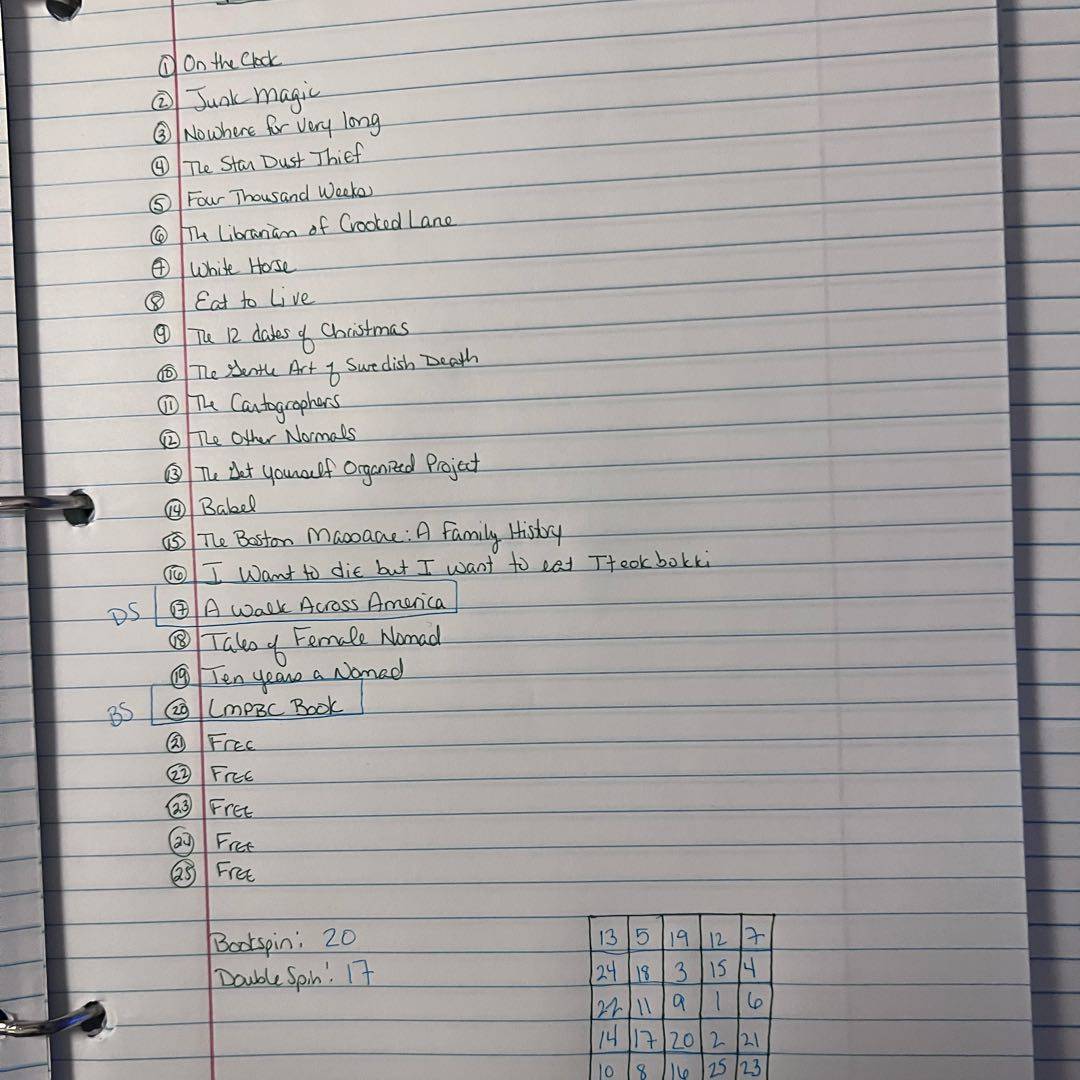 1 On the Clock
2 Junk Magic
3 Nowhere for very long
4 The Star Dust Thief
5 Four Thousand Weeks
6 The Librarian of Crooked Lane
7 White Horse
8 Eat to Live
9 The 12 dates of Christmas
10 The Gentle Art of Swedish Death
11 The Cartographers
12 The Other Normals
13 The Get Yourself Organized Project
14 Babel
15 The Boston Massacre: A Family History
16 I Want to die but I want to eat Tteokbokki
DS 17 A Walk Across America
18 Tales of Female Nomad
19 Ten years a Nomad
BS 20 LMPBC Book
21 Free
22 Free
23 Free
24 Free
25 Free
Bookspin: 20
Double Spin: 17
13 5 19 12 7
24 18 3 15 4
22 11 9 1 6
14 17 20 2 21
10 8 16 25 23